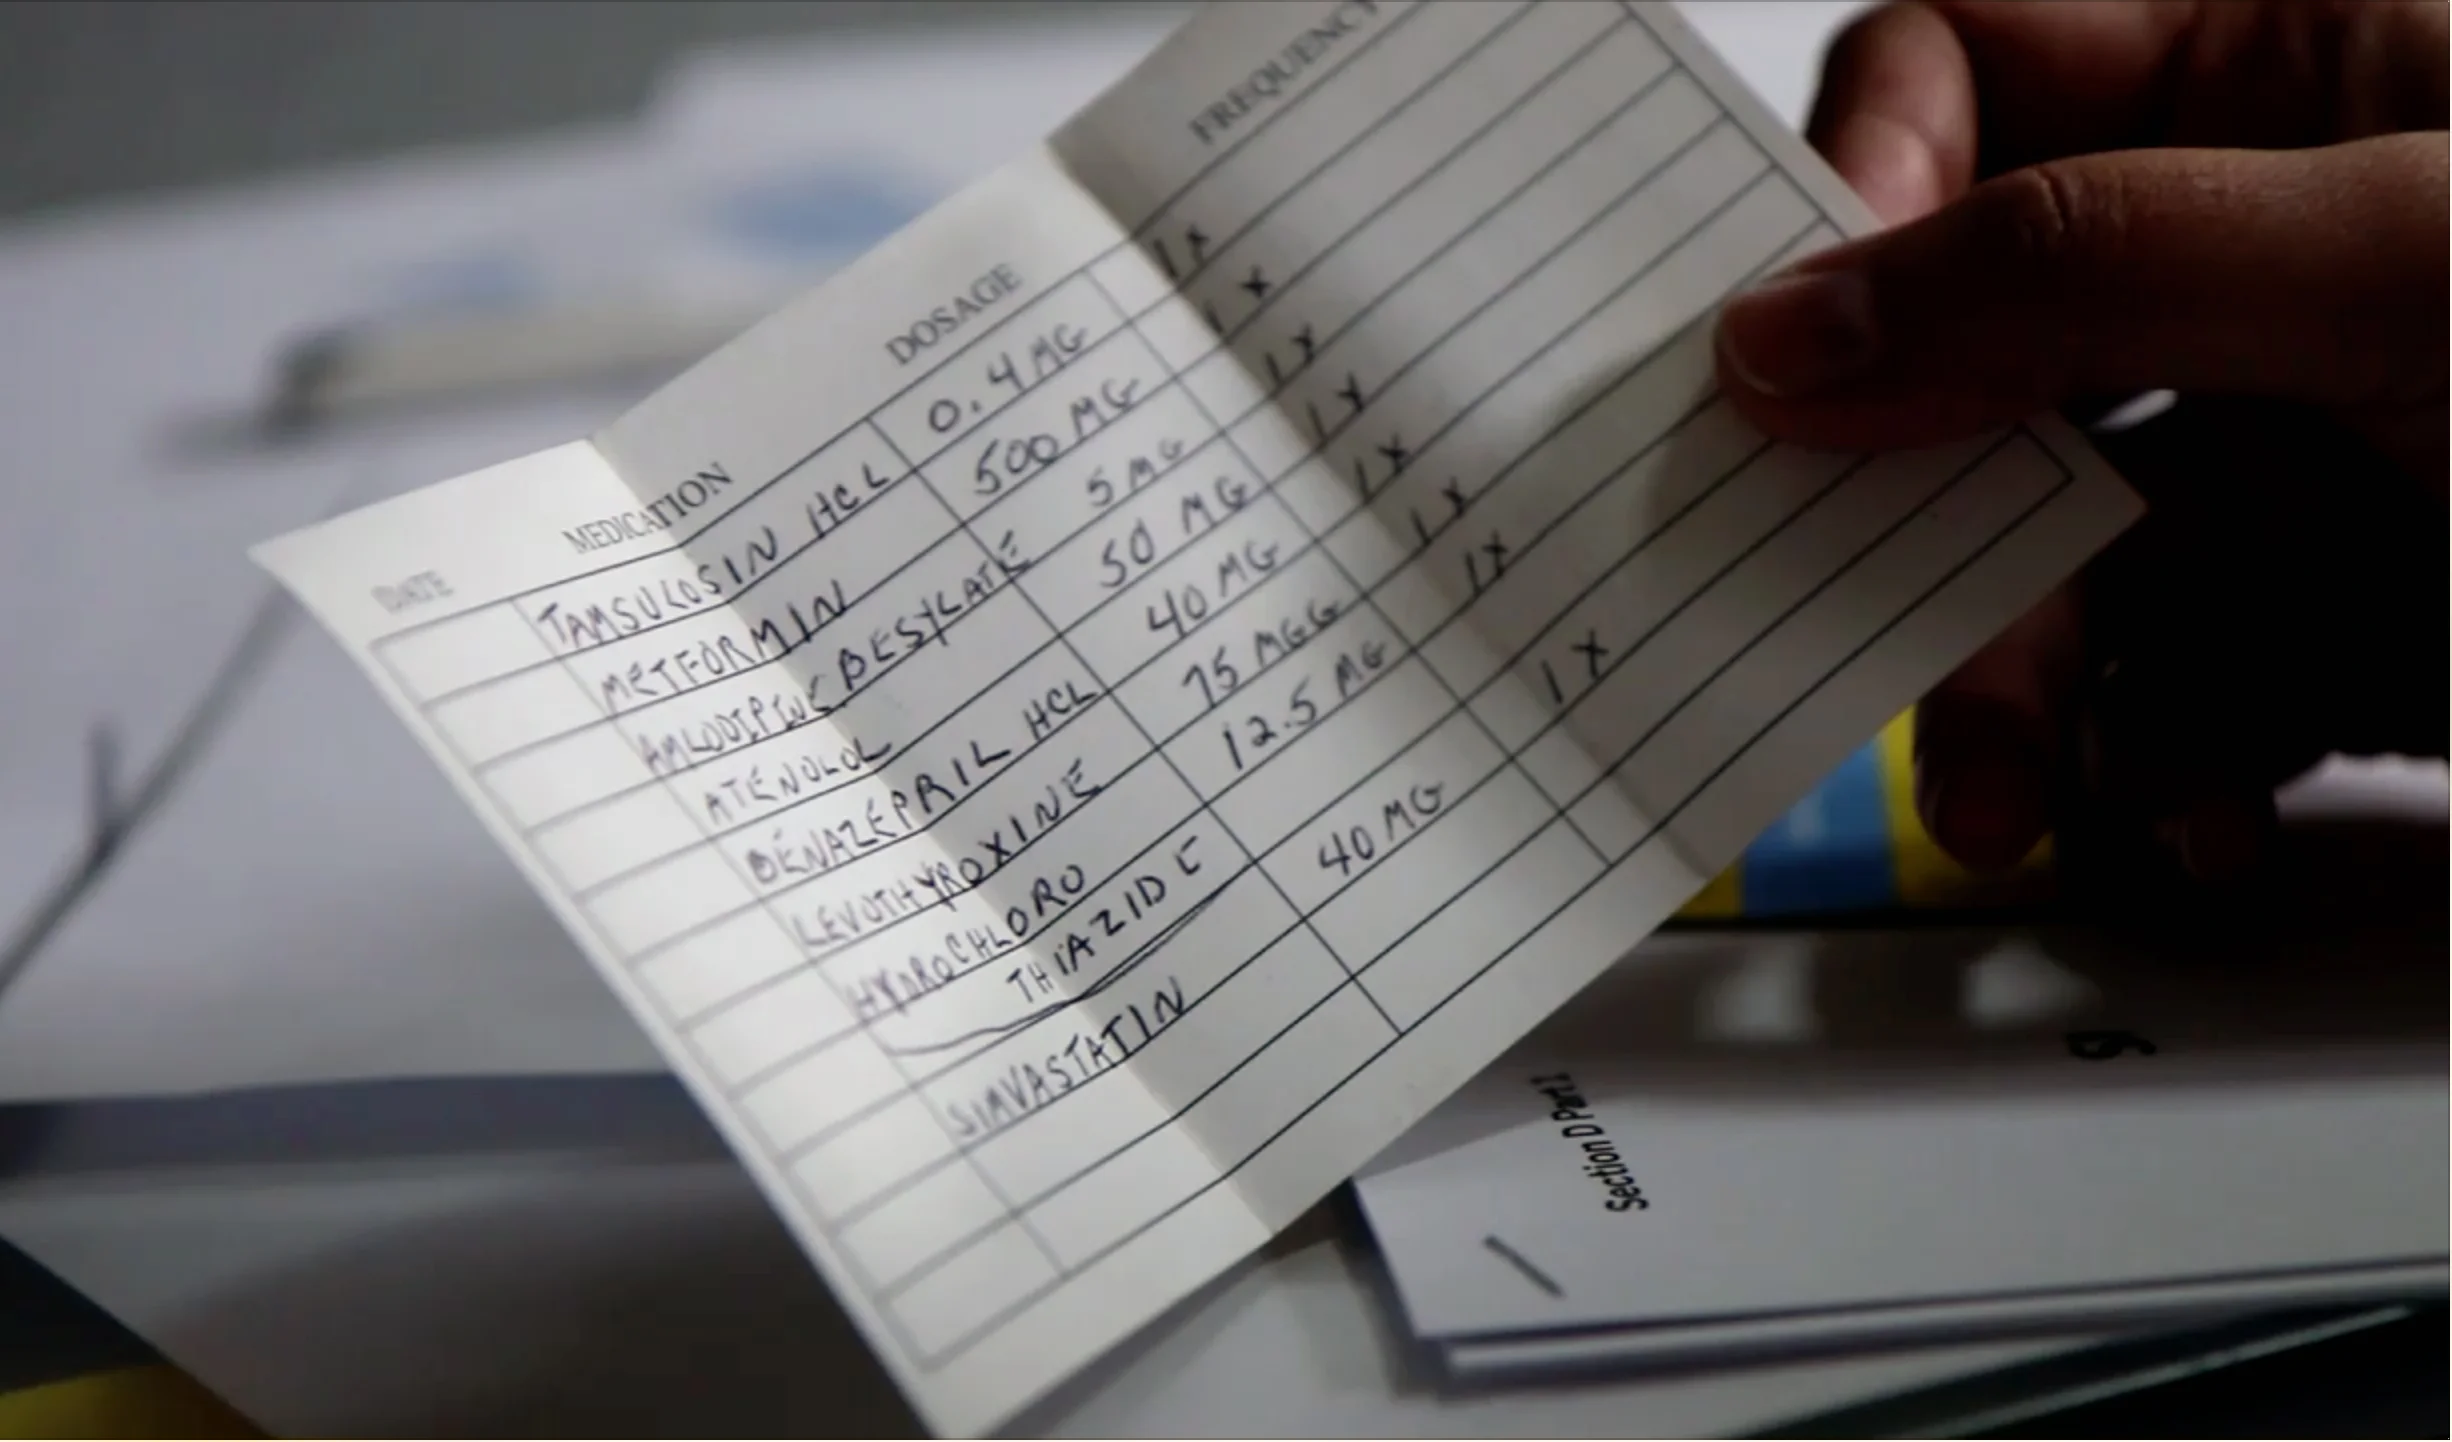 DATE MEDICATION DOSAGE FREQUENCY
TAMSULOSIN HCL 0.4 MG 1X
METFORMIN 500 MG 1X
AMLODIPINE BESYLATE 5 MG 1X
ATENOLOL 50 MG 1X
BENAZEPRIL HCL 40 MG 1X
LEVOTHYROXINE 75 MGG 1X
HYDROCHLORO 12.5 MG 1X
THIAZIDE
SIMVASTATIN 40 MG 1X
Section D Part 1